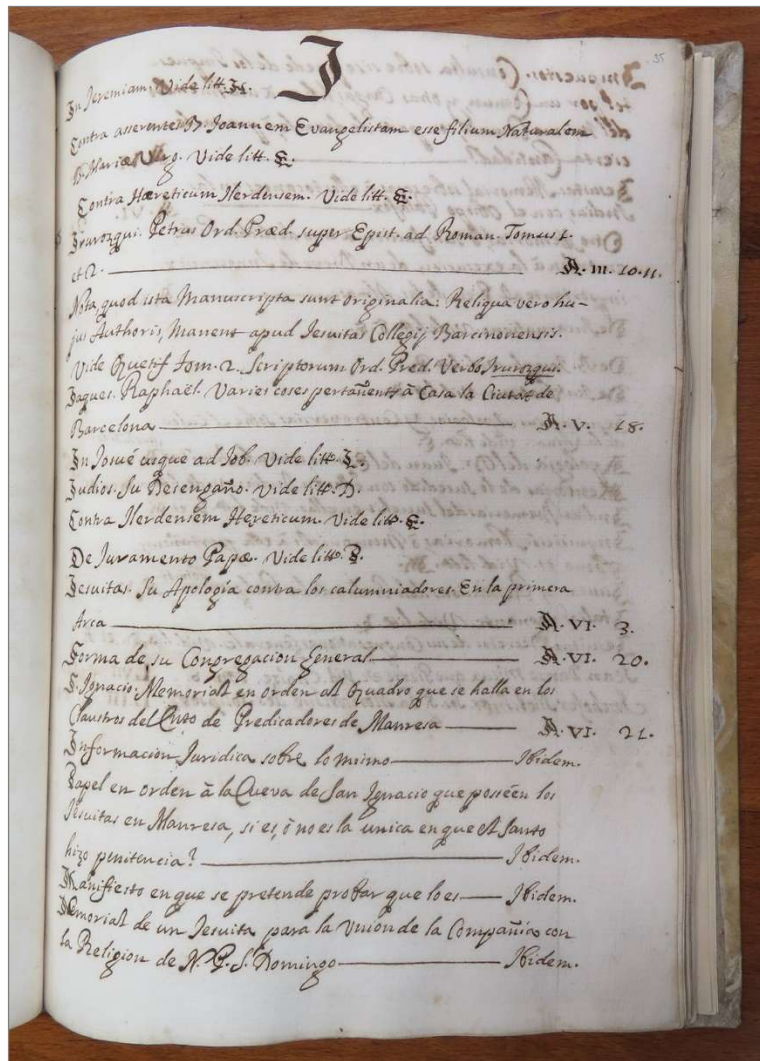 35
J
In Jeremiam. Vide litt. H.
Contra asserentes D. Joannem Evangelistam esse filium Naturalem
B. Mariæ Virg. Vide litt. E.
Contra Hæreticum Ilerdensem. Vide litt. E.
Irurozqui. Petrus Ord. Præd. super Epist. ad Roman. Tomus 1.
et 2. A. III. 10. 11.
Nota, quod ista Manuscripta sunt originalia: Reliqua vero hu-
jus Authoris, Manent apud Jesuitas Collegij Barcinonensis.
Vide Quetif tom. 2. Scriptorum Ord. Præd. Verbo Irurozqui.
Jaques. Raphaël. Varies coses pertañents à Casa la Ciutat de
Barcelona A. V. 18.
In Josué usque ad Job. Vide litt.
Judios. Su Desengaño. Vide litt. D.
Contra Ilerdensem Hereticum. Vide litt. E.
De Juramento Papæ. Vide litt. P.
Jesuitas. Su Apología contra los calumniadores. En la primera
Arca A. VI. 3.
Forma de su Congregacion General A. VI. 20.
S. Ignacio. Memorial en orden al Quadro que se halla en los
Claustros del Cuto de Predicadores de Manresa A. VI. 21.
Informacion Juridica sobre lo mismo Ibidem.
Papel en orden à la Cueva de San Ignacio que posséen los
Jesuitas en Manresa, si es, ò no es la unica en que el Santo
hizo penitencia? Ibidem.
Manifiesto en que se pretende probar que lo es Ibidem.
Memorial de un Jesuita para la Union de la Compañia con
la Religion de N. P. S. Domingo Ibidem.